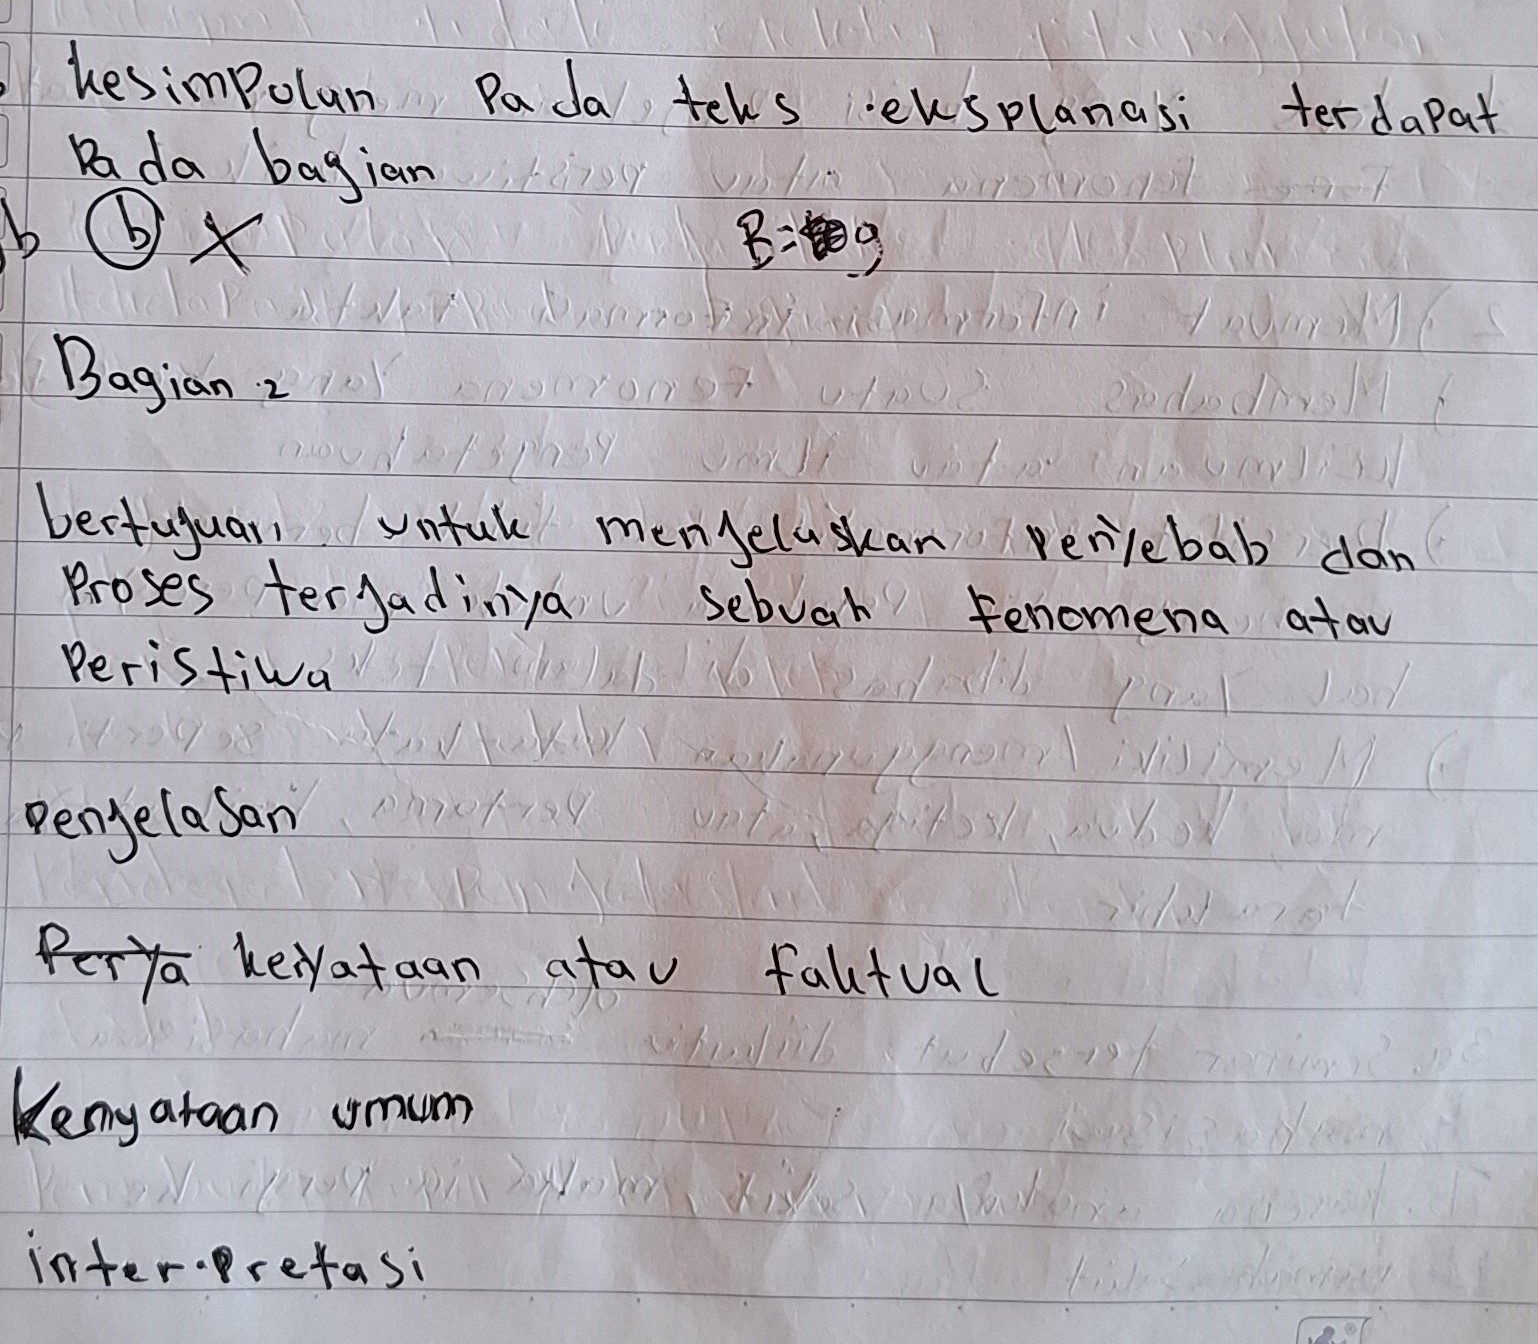 kesimpolan Pada teks eksplanasi terdapat
Pada bagian
b (b) X B= 9
Bagian 2
bertujuan untuk menjelaskan penyebab dan
Proses terjadinya sebuah fenomena atau
Peristiwa
penjelasan
Perya kenyataan atau faktual
Kenyataan umum
interpretasi